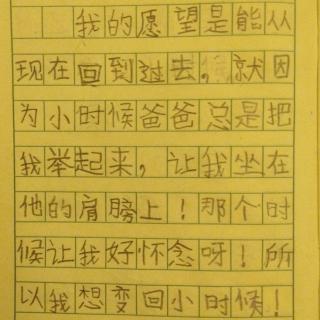 我的愿望是能从
现在回到过去，就因
为小时候爸爸总是把
我举起来，让我坐在
他的肩膀上！那个时
候让我好怀念呀！所
以我想变回小时候！